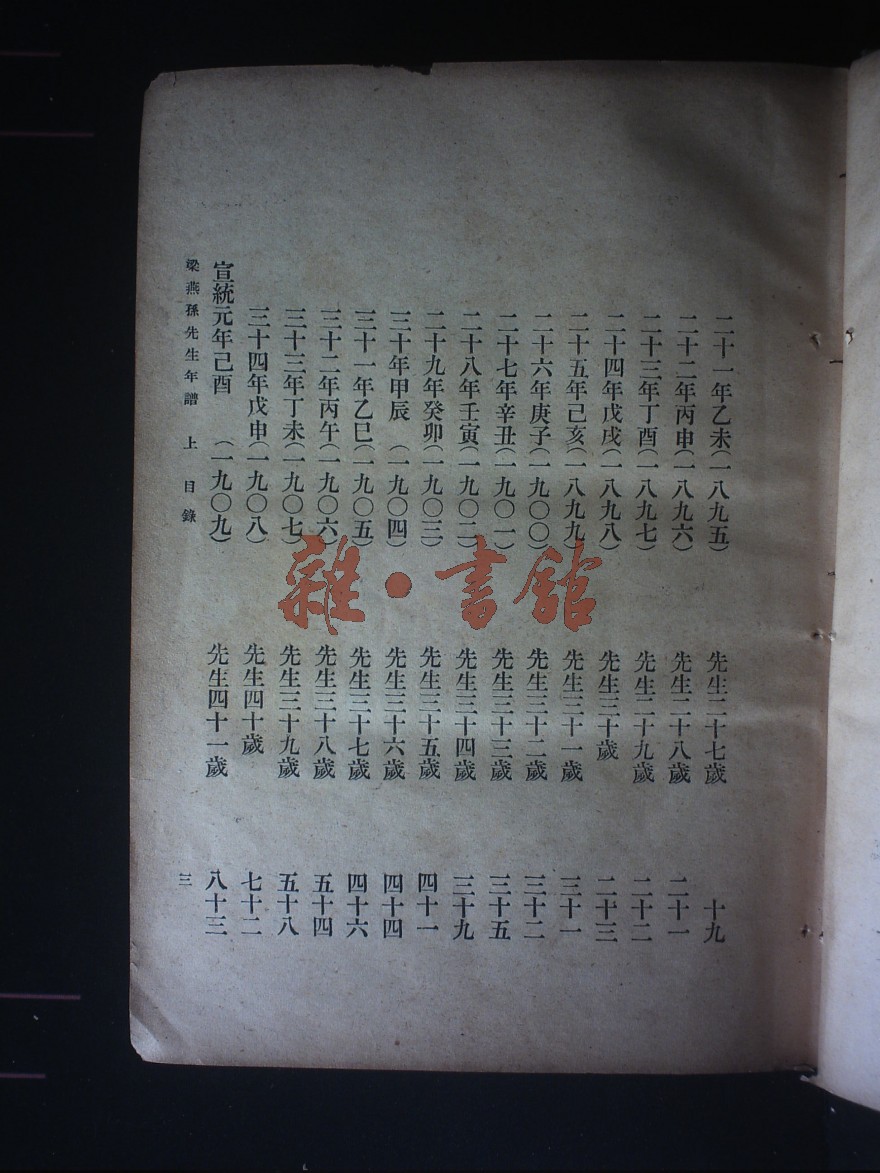 二十一年乙未(一八九五) 先生二十七歲 十九
二十二年丙申(一八九六) 先生二十八歲 二十一
二十三年丁酉(一八九七) 先生二十九歲 二十二
二十四年戊戌(一八九八) 先生三十歲 二十三
二十五年己亥(一八九九) 先生三十一歲 三十一
二十六年庚子(一九〇〇) 先生三十二歲 三十二
二十七年辛丑(一九〇一) 先生三十三歲 三十五
二十八年壬寅(一九〇二) 先生三十四歲 三十九
二十九年癸卯(一九〇三) 先生三十五歲 四十一
三十年甲辰(一九〇四) 先生三十六歲 四十四
三十一年乙巳(一九〇五) 先生三十七歲 四十六
三十二年丙午(一九〇六) 先生三十八歲 五十四
三十三年丁未(一九〇七) 先生三十九歲 五十八
三十四年戊申(一九〇八) 先生四十歲 七十二
宣統元年己酉(一九〇九) 先生四十一歲 八十三
梁燕孫先生年譜 上 目錄 三
雜·書館